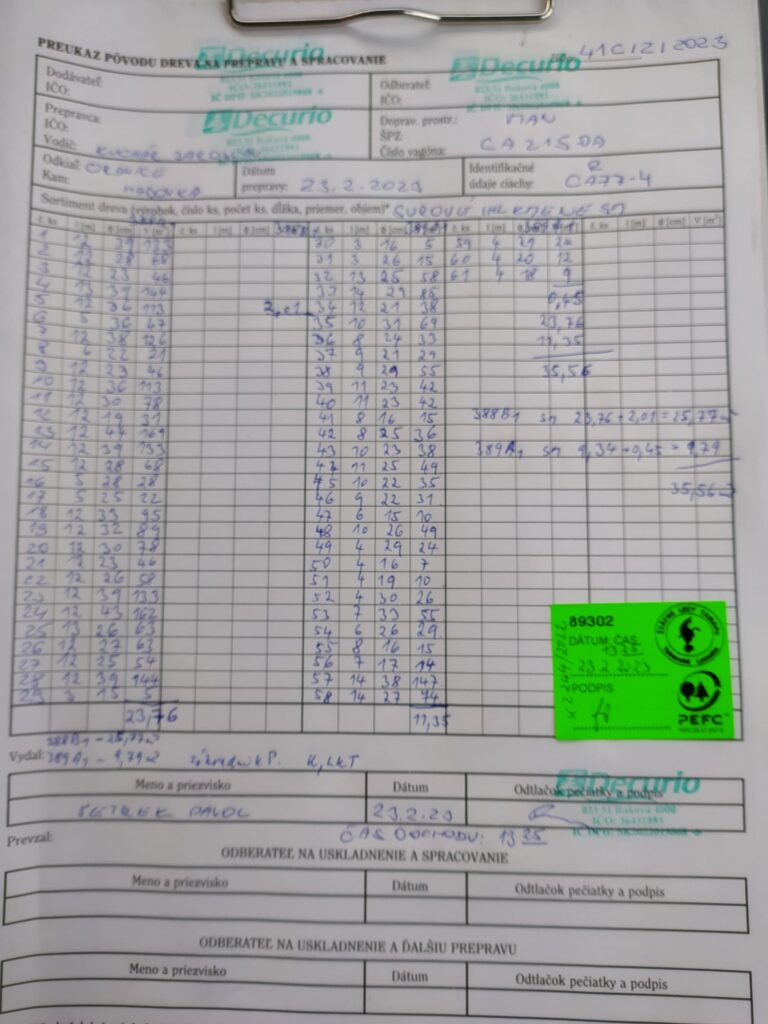 PREUKAZ PÔVODU DREVA NA PREPRAVU A SPRACOVANIE
41C/21/2023
Decurio
Decurio
Decurio
Dodávateľ:
IČO:
Odberateľ:
IČO:
Prepravca:
IČO:
Vodič:
Doprav. prostr.: MAN
ŠPZ:
Číslo vagóna: CA215DA
Odkiaľ:
Kam:
Dátum
prepravy: 23.2.2023
Identifikačné
údaje ciachy: CA77-4
Sortiment dreva (výrobok, číslo ks, počet ks, dĺžka, priemer, objem)*
č. ks l [m] Φ [cm] V [m³]
1 12 39 133 30 3 16 5 59 4 29 24
2 12 28 68 31 3 26 15 60 4 20 12
3 12 23 46 32 13 25 58 61 4 18 9
4 13 39 144 33 14 29 85 0,45
5 12 36 113 2,01 34 12 21 38 23,76
6 5 36 47 35 10 31 69 11,35
7 12 38 126 36 8 24 33
8 6 22 21 37 9 21 29 35,56
9 12 23 46 38 9 29 55
10 12 36 113 39 11 23 42
11 12 30 78 40 11 23 42
12 12 19 31 41 8 16 15 388B1 sm 23,76+2,01=25,77m³
13 12 44 169 42 8 25 36
14 12 39 133 43 10 23 38 389A1 sm 9,34+0,45=9,79
15 12 28 68 44 11 25 49
16 5 28 28 45 10 22 35 35,56m³
17 5 25 22 46 9 22 31
18 12 33 95 47 6 15 10
19 12 32 89 48 10 26 49
20 12 30 78 49 4 29 24
21 12 23 46 50 4 16 7
22 12 26 58 51 4 19 10
23 12 39 133 52 4 30 26
24 12 43 162 53 7 33 55
25 13 26 63 54 6 26 29
26 12 27 63 55 8 16 15
27 12 25 54 56 7 17 14
28 12 39 144 57 14 38 147
29 3 15 5 58 14 27 74
23,76 11,35
89302
DÁTUM: ČAS:
13 25
23.2.2023
PODPIS
PEFC
388B1 - 25,77m³
Vydal: 389A1 - 9,79m³
Meno a priezvisko Dátum Odtlačok pečiatky a podpis
PETREK PAVOL 23.2.23
Decurio
023 51 Raková 4000
IČO: 36431893
Prevzal:
ČAS ODCHODU: 13 25
ODBERATEĽ NA USKLADNENIE A SPRACOVANIE
Meno a priezvisko Dátum Odtlačok pečiatky a podpis
ODBERATEĽ NA USKLADNENIE A ĎALŠIU PREPRAVU
Meno a priezvisko Dátum Odtlačok pečiatky a podpis